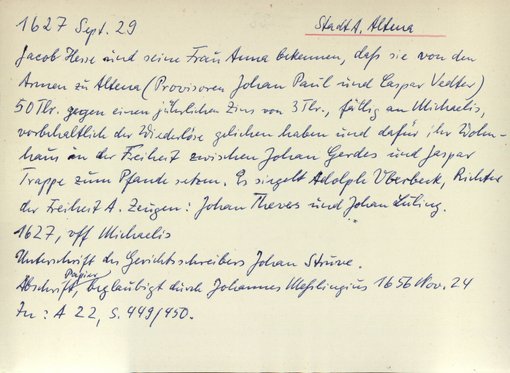 1627 Sept. 29 Stadt A. Altena
Jacob Hesse und seine Frau Anna bekennen, daß sie von den
Armen zu Altena (Provisoren Johan Paul und Caspar Vedter)
50 Tlr. gegen einen jährlichen Zins von 3 Tlr., fällig an Michaelis,
vorbehaltlich der Wiederlöse geliehen haben und dafür ihr Wohn-
haus in der Freiheit zwischen Johan Gerdes und Jaspar
Trappe zum Pfande setzen. Es siegelt Adolph Überbeck, Richter
der Freiheit A. Zeugen: Johan Thevers und Johan Lüling.
1627, uff Michaelis
Unterschrift des Gerichtsschreibers Johan Struve.
Papier
Abschrift, beglaubigt durch Johannes Meßlingius 1656 Nov. 24
In: A 22, S. 449/450.